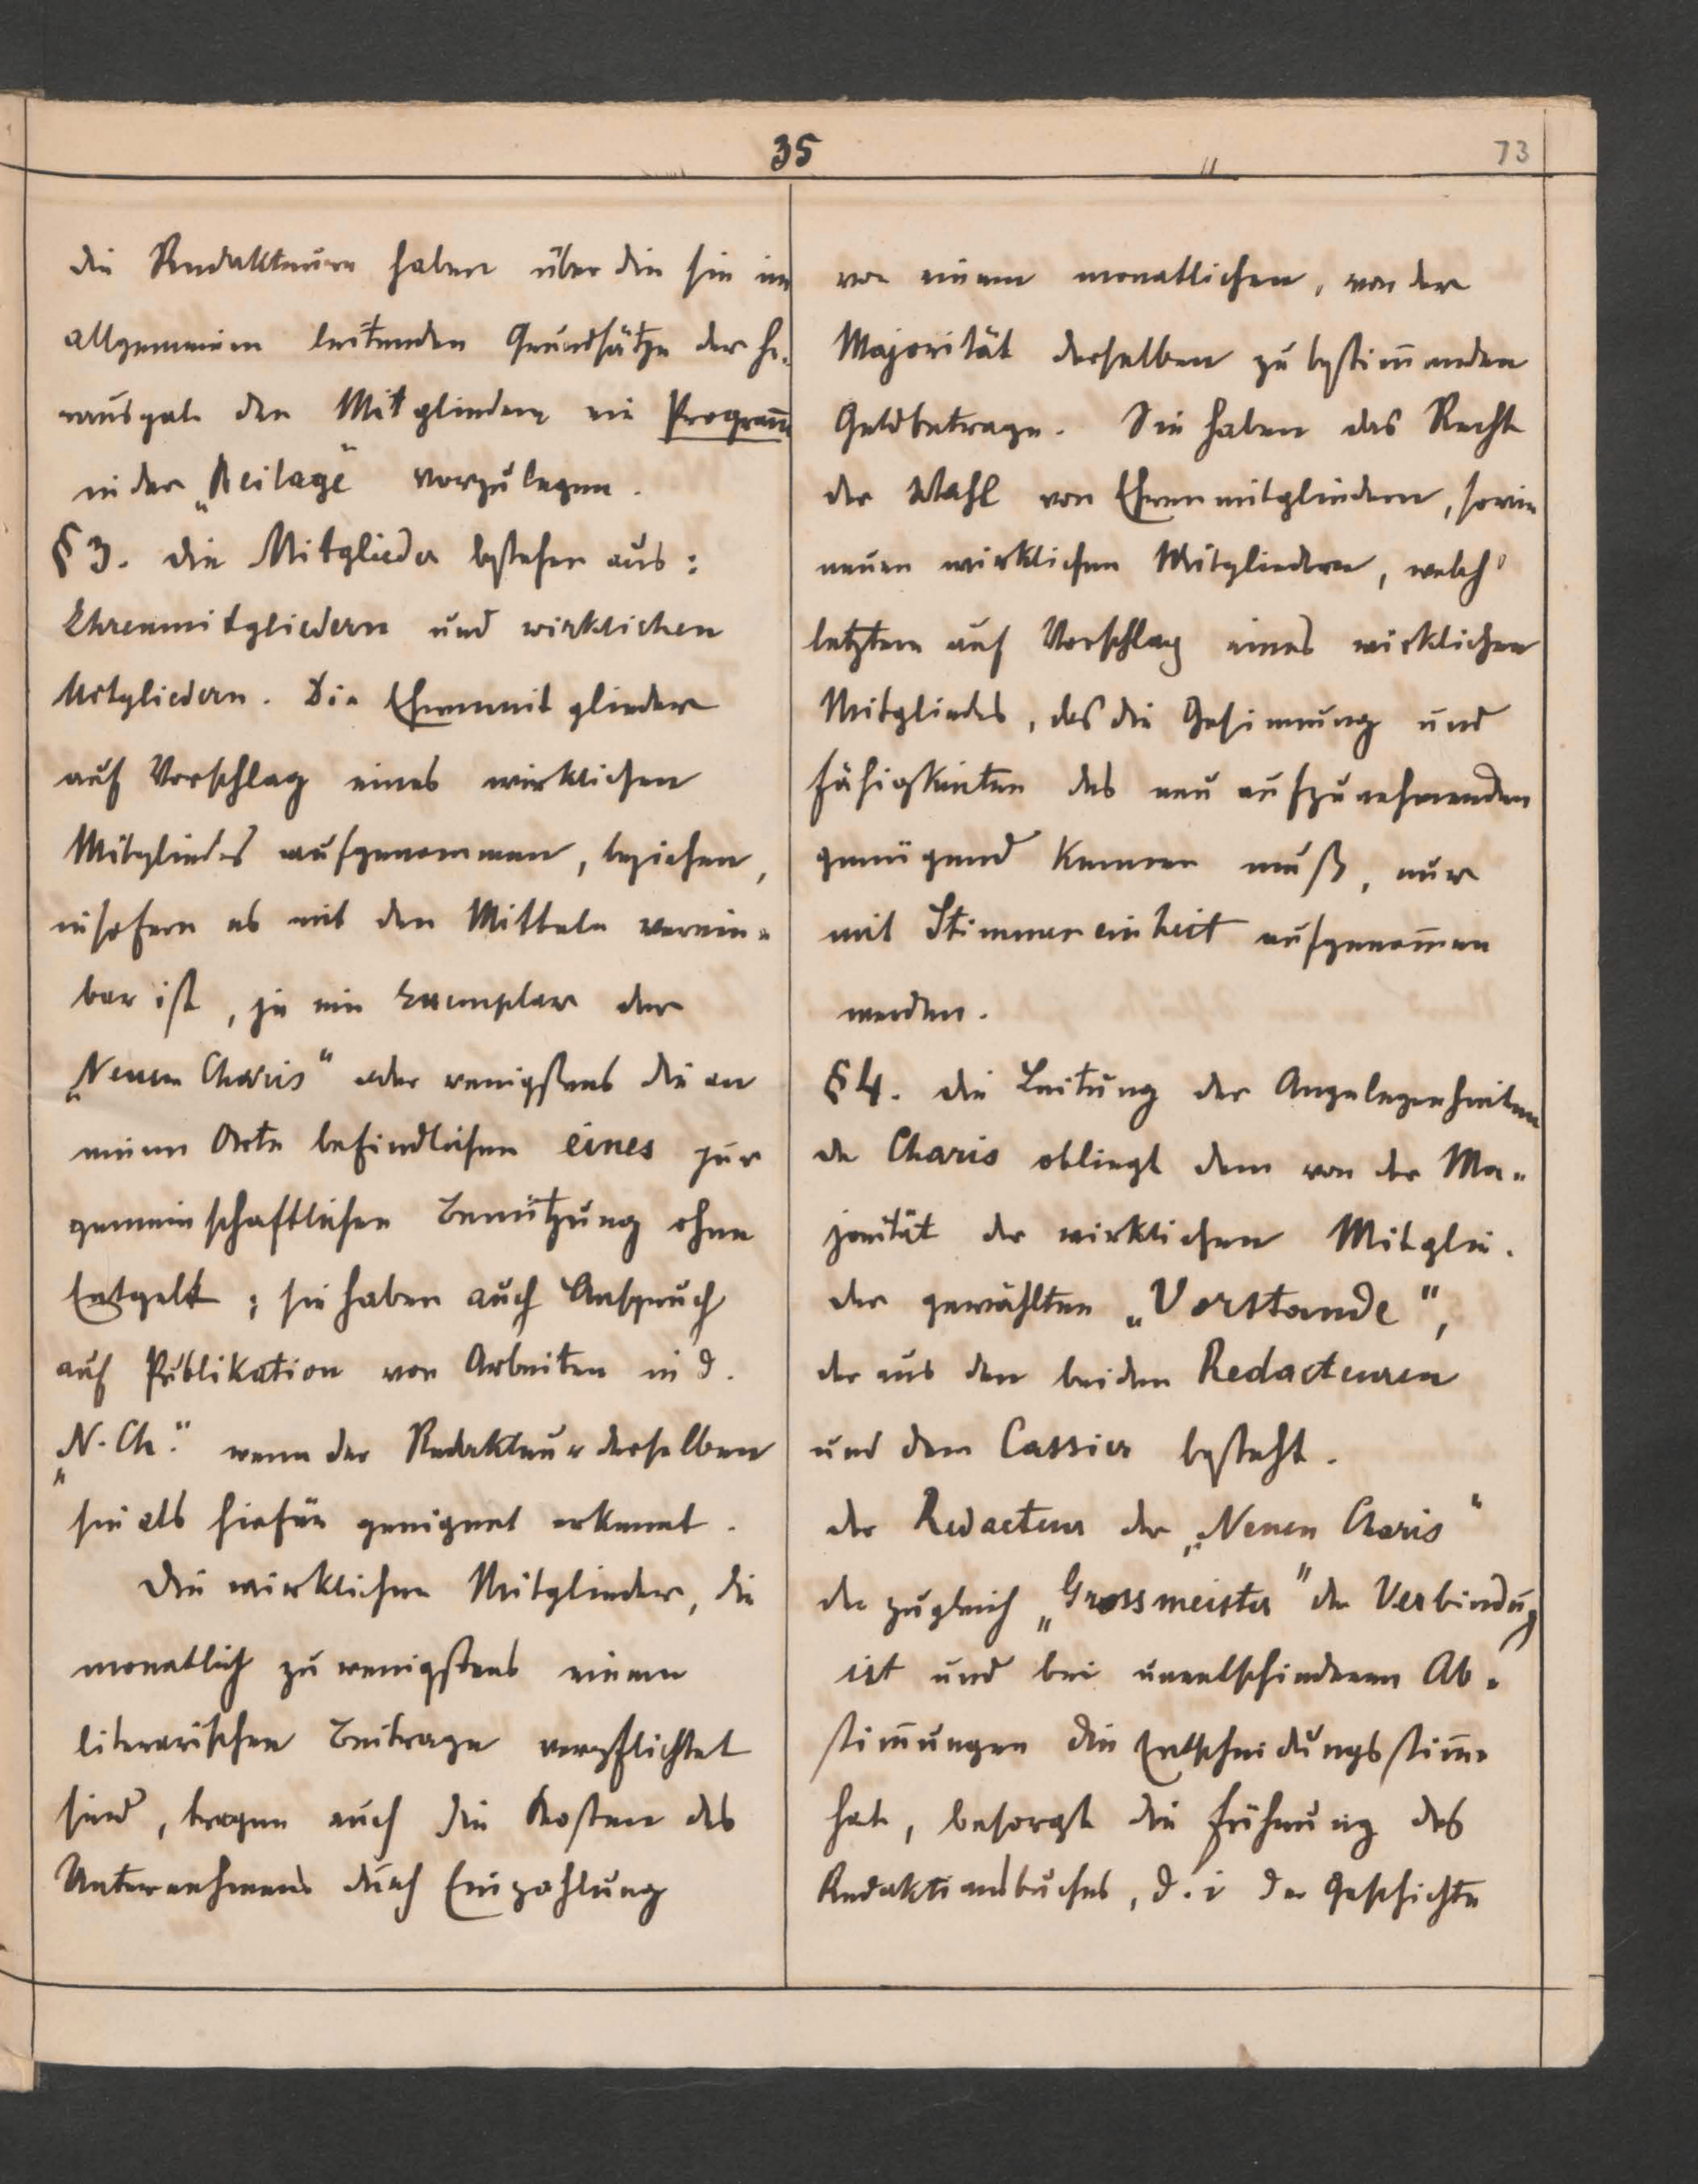 35
73
die Redakteure haben über die sie im
allgemeinen leitenden Grundsätze der He-
rausgabe den Mitgliedern ein Program̄
in der „Beilage“ vorzulegen.
§ 3. Die Mitglieder bestehen aus:
Ehrenmitgliedern und wirklichen
Mitgliedern. Die Ehrenmitglieder
auf Vorschlag eines wirklichen
Mitgliedes aufgenommen, beziehen,
insofern es mit den Mitteln verein-
bar ist, je ein Exemplar der
„Neuen Charis“ oder wenigstens die an
einem Orte befindlichen eines zur
gemeinschaftlichen Benützung ohne
Entgelt; sie haben auch Anspruch
auf Publikation von Arbeiten in d.
„N. Ch.“ wenn der Redakteur derselben
sie als hiefür geeignet erkennt.
Die wirklichen Mitglieder, die
monatlich zu wenigstens einem
literarischen Beitrage verpflichtet
sind, tragen auch die Kosten des
Unternehmens durch Einzahlung
von einem monatlichen, von der
Majorität derselben zu bestim̄enden
Geldbetrage. Sie haben das Recht
der Wahl von Ehrenmitgliedern, sowie
neuen wirklichen Mitgliedern, welch'
letztere auf Vorschlag eines wirklichen
Mitgliedes, das die Gesinnung und
Fähigkeiten des neu aufzunehmenden
genügend kennen muß, nur
mit Stimmeneinheit aufgenom̄en
werden.
§ 4. Die Leitung der Angelegenheiten
der Charis obliegt dem von der Ma-
jorität der wirklichen Mitglie-
der gewählten „Vorstande“,
der aus den beiden Redacteuren
und dem Cassier besteht.
der Redacteur der „Neuen Charis“
der zugleich „Grossmeister“ der Verbindung
ist und bei unentschiedenen Ab-
stim̄ungen die Entscheidungsstim̄e
hat, besorgt die Führung des
Redaktionsbuches, d. i der Geschichte